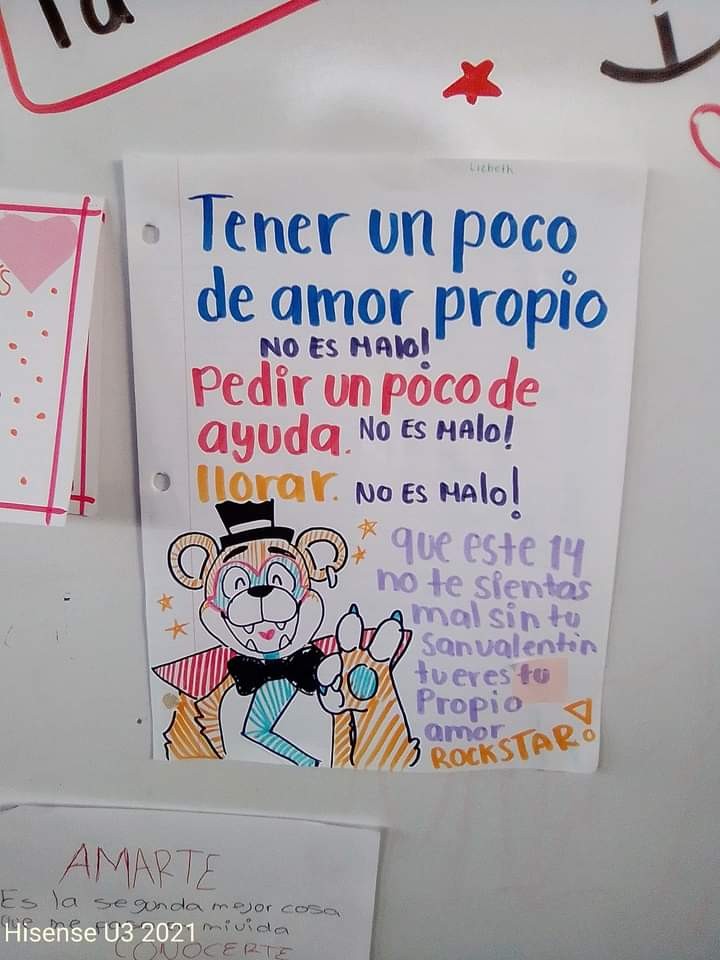 Lizbeth
Tener un poco
de amor propio
NO ES MAlo!
Pedir un poco de
ayuda. NO ES MAlo!
llorar. NO ES MAlo!
que este 14
no te sientas
mal sin tu
sanvalentin
tu eres tu
Propio
amor
ROCKSTAR!
AMARTE
Es la segunda mejor cosa
que me mivida
CONOCERTE
Hisense U3 2021